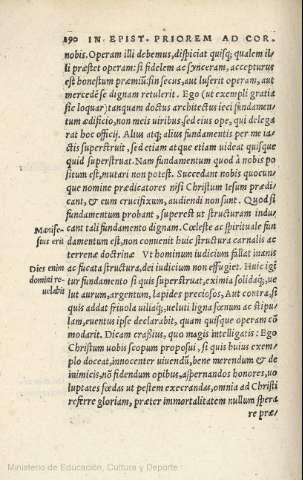 290 IN EPIST. PRIOREM AD COR.
nobis. Operam illi debemus, dispiciat quisq; qualem il
li præstet operam: si fidelem ac synceram, accepturus
est honestum præmiũ: sin secus, aut luserit operam, aut
mercedẽ se dignam retulerit. Ego (ut exempli gratia
sic loquar) tanquam doctus architectus ieci fundamen
tum ædificio, non meis uiribus, sed eius ope, qui delega
rat hoc officij. Alius atq; alius fundamentis per me ia=
ctis superstruit, sed etiam atque etiam uideat quisque
quid superstruat. Nam fundamentum quod à nobis po
situm est, mutari non potest. Succedant nobis quocun=
que nomine prædicatores nisi Christum Iesum prædi=
cant, & eum crucifixum, audiendi non sunt. Quod si
fundamentum probant, superest ut structuram indu=
Manife= cant tali fundamento dignam. Cœleste ac spirituale fun
stus erit damentum est, non conuenit huic structura carnalis ac
terrenæ doctrinæ Vt hominum iudicium fallat inanis
Dies enim ac fucata structura, dei iudicium non effugiet. Huic igi
domini re= tur fundamento si quis superstruat, eximia solidaq;, ue
uelabit lut aurum, argentum, lapides preciosos, Aut contra, si
quis addat friuola uiliaq;, ueluti ligna fœnum ac stipu=
lam, euentus ipse declarabit, quam quisque operam cõ
modarit. Dicam crassius, quo magis intelligatis: Ego
Christum uobis scopum proposui, si quis huius exem=
plo doceat, innocenter uiuendũ, bene merendum & de
inimicis, nõ fidendum opibus, aspernandos honores, uo
luptates fœdas ut pestem execrandas, omnia ad Christi
referre gloriam, præter immortalitatem nullum spera
re præ=
Ministerio de Educación, Cultura y Deporte